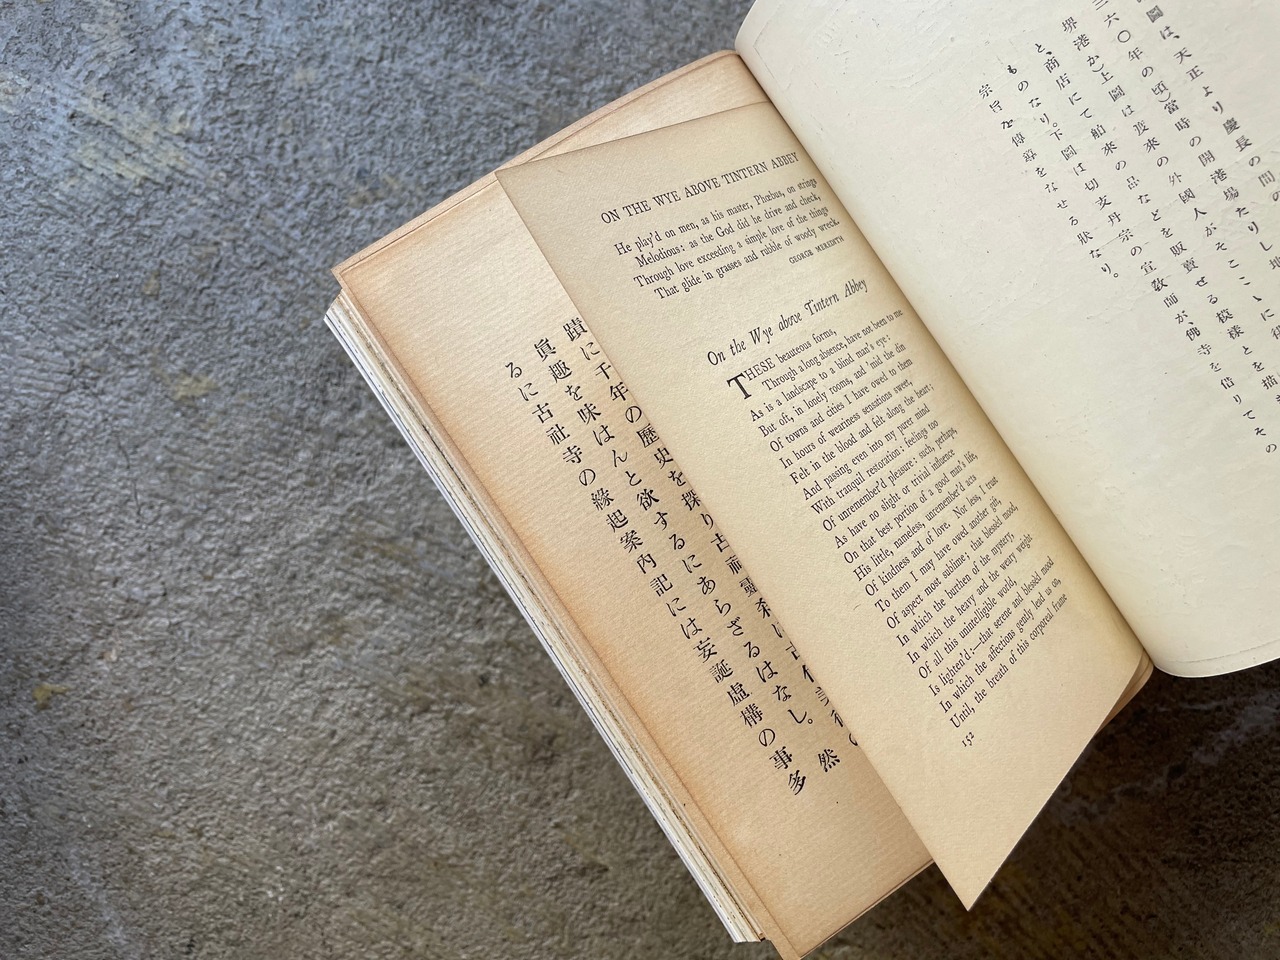 ON THE WYE ABOVE TINTERN ABBEY
He play'd on men, as his master, Phœbus, on strings
Melodious: as the God did he drive and check,
Through love exceeding a simple love of the things
That glide in grasses and rubble of woody wreck.
GEORGE MEREDITH
On the Wye above Tintern Abbey
THESE beauteous forms,
Through a long absence, have not been to me
As is a landscape to a blind man's eye:
But oft, in lonely rooms, and 'mid the din
Of towns and cities I have owed to them
In hours of weariness sensations sweet,
Felt in the blood and felt along the heart;
And passing even into my purer mind
With tranquil restoration: feelings too
Of unremember'd pleasure: such, perhaps,
As have no slight or trivial influence
On that best portion of a good man's life,
His little, nameless, unremember'd acts
Of kindness and of love. Nor less, I trust
To them I may have owed another gift,
Of aspect most sublime; that blessèd mood,
In which the burthen of the mystery,
In which the heavy and the weary weight
Of all this unintelligible world,
Is lighten'd:—that serene and blessèd mood
In which the affections gently lead us on,
Until, the breath of this corporeal frame
152
圖は、天正より慶長の間の
三六〇年の頃)當時の開港場たりし地
堺港か)上圖は渡來の外國人がそここゝに徘
と、商店にて舶來の品などを販賣せる模樣とを描
ものなり。下圖は切支丹宗の宣敎師が、佛寺を借りてその
宗旨を傳導をなせる狀なり。
蹟に千年の歷史を探り古
然
眞趣を味はんと欲するにあらざるはなし。
るに古社寺の緣起案內記には妄誕虛構の事多